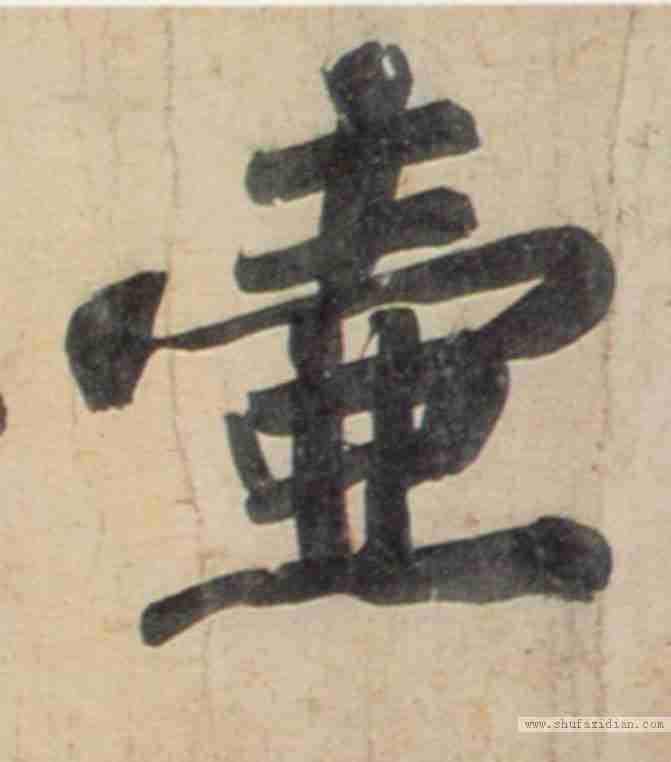 壺
www.shufazidian.com